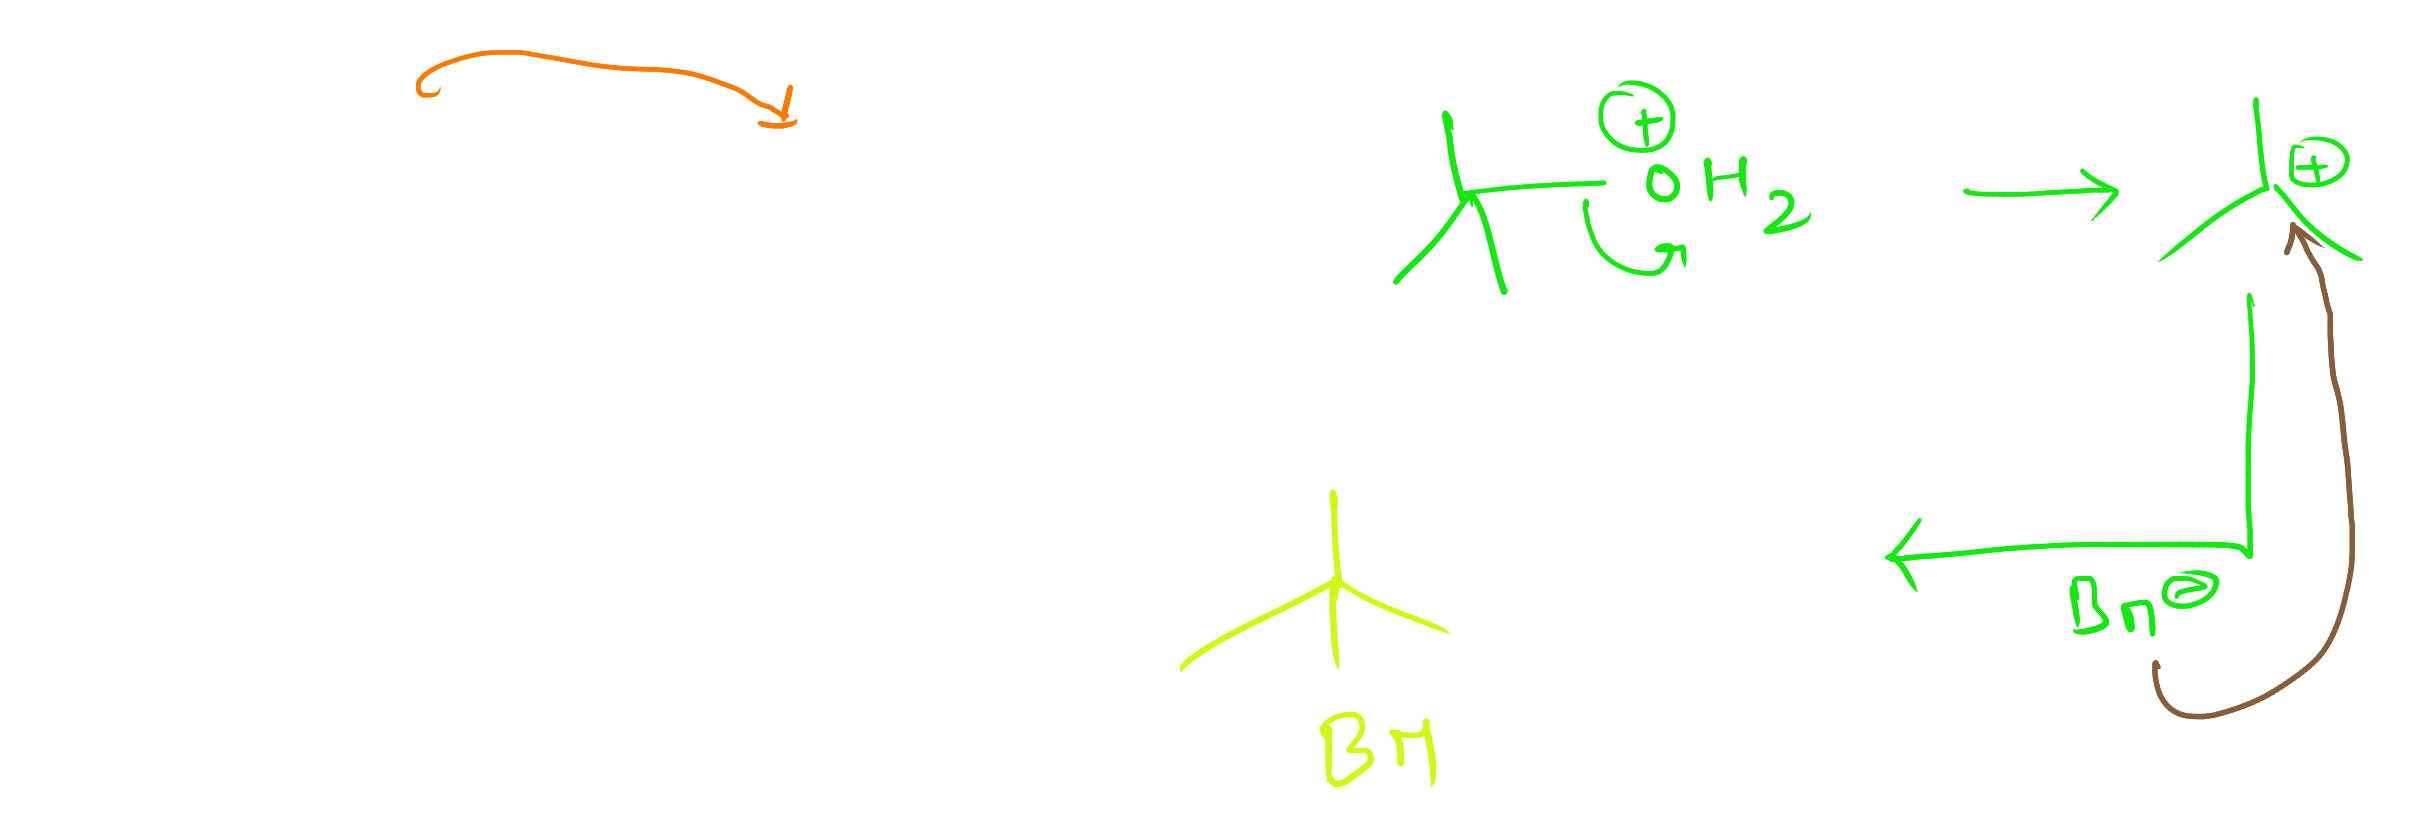 ⊕
OH2
⊕
Br⊖
Br